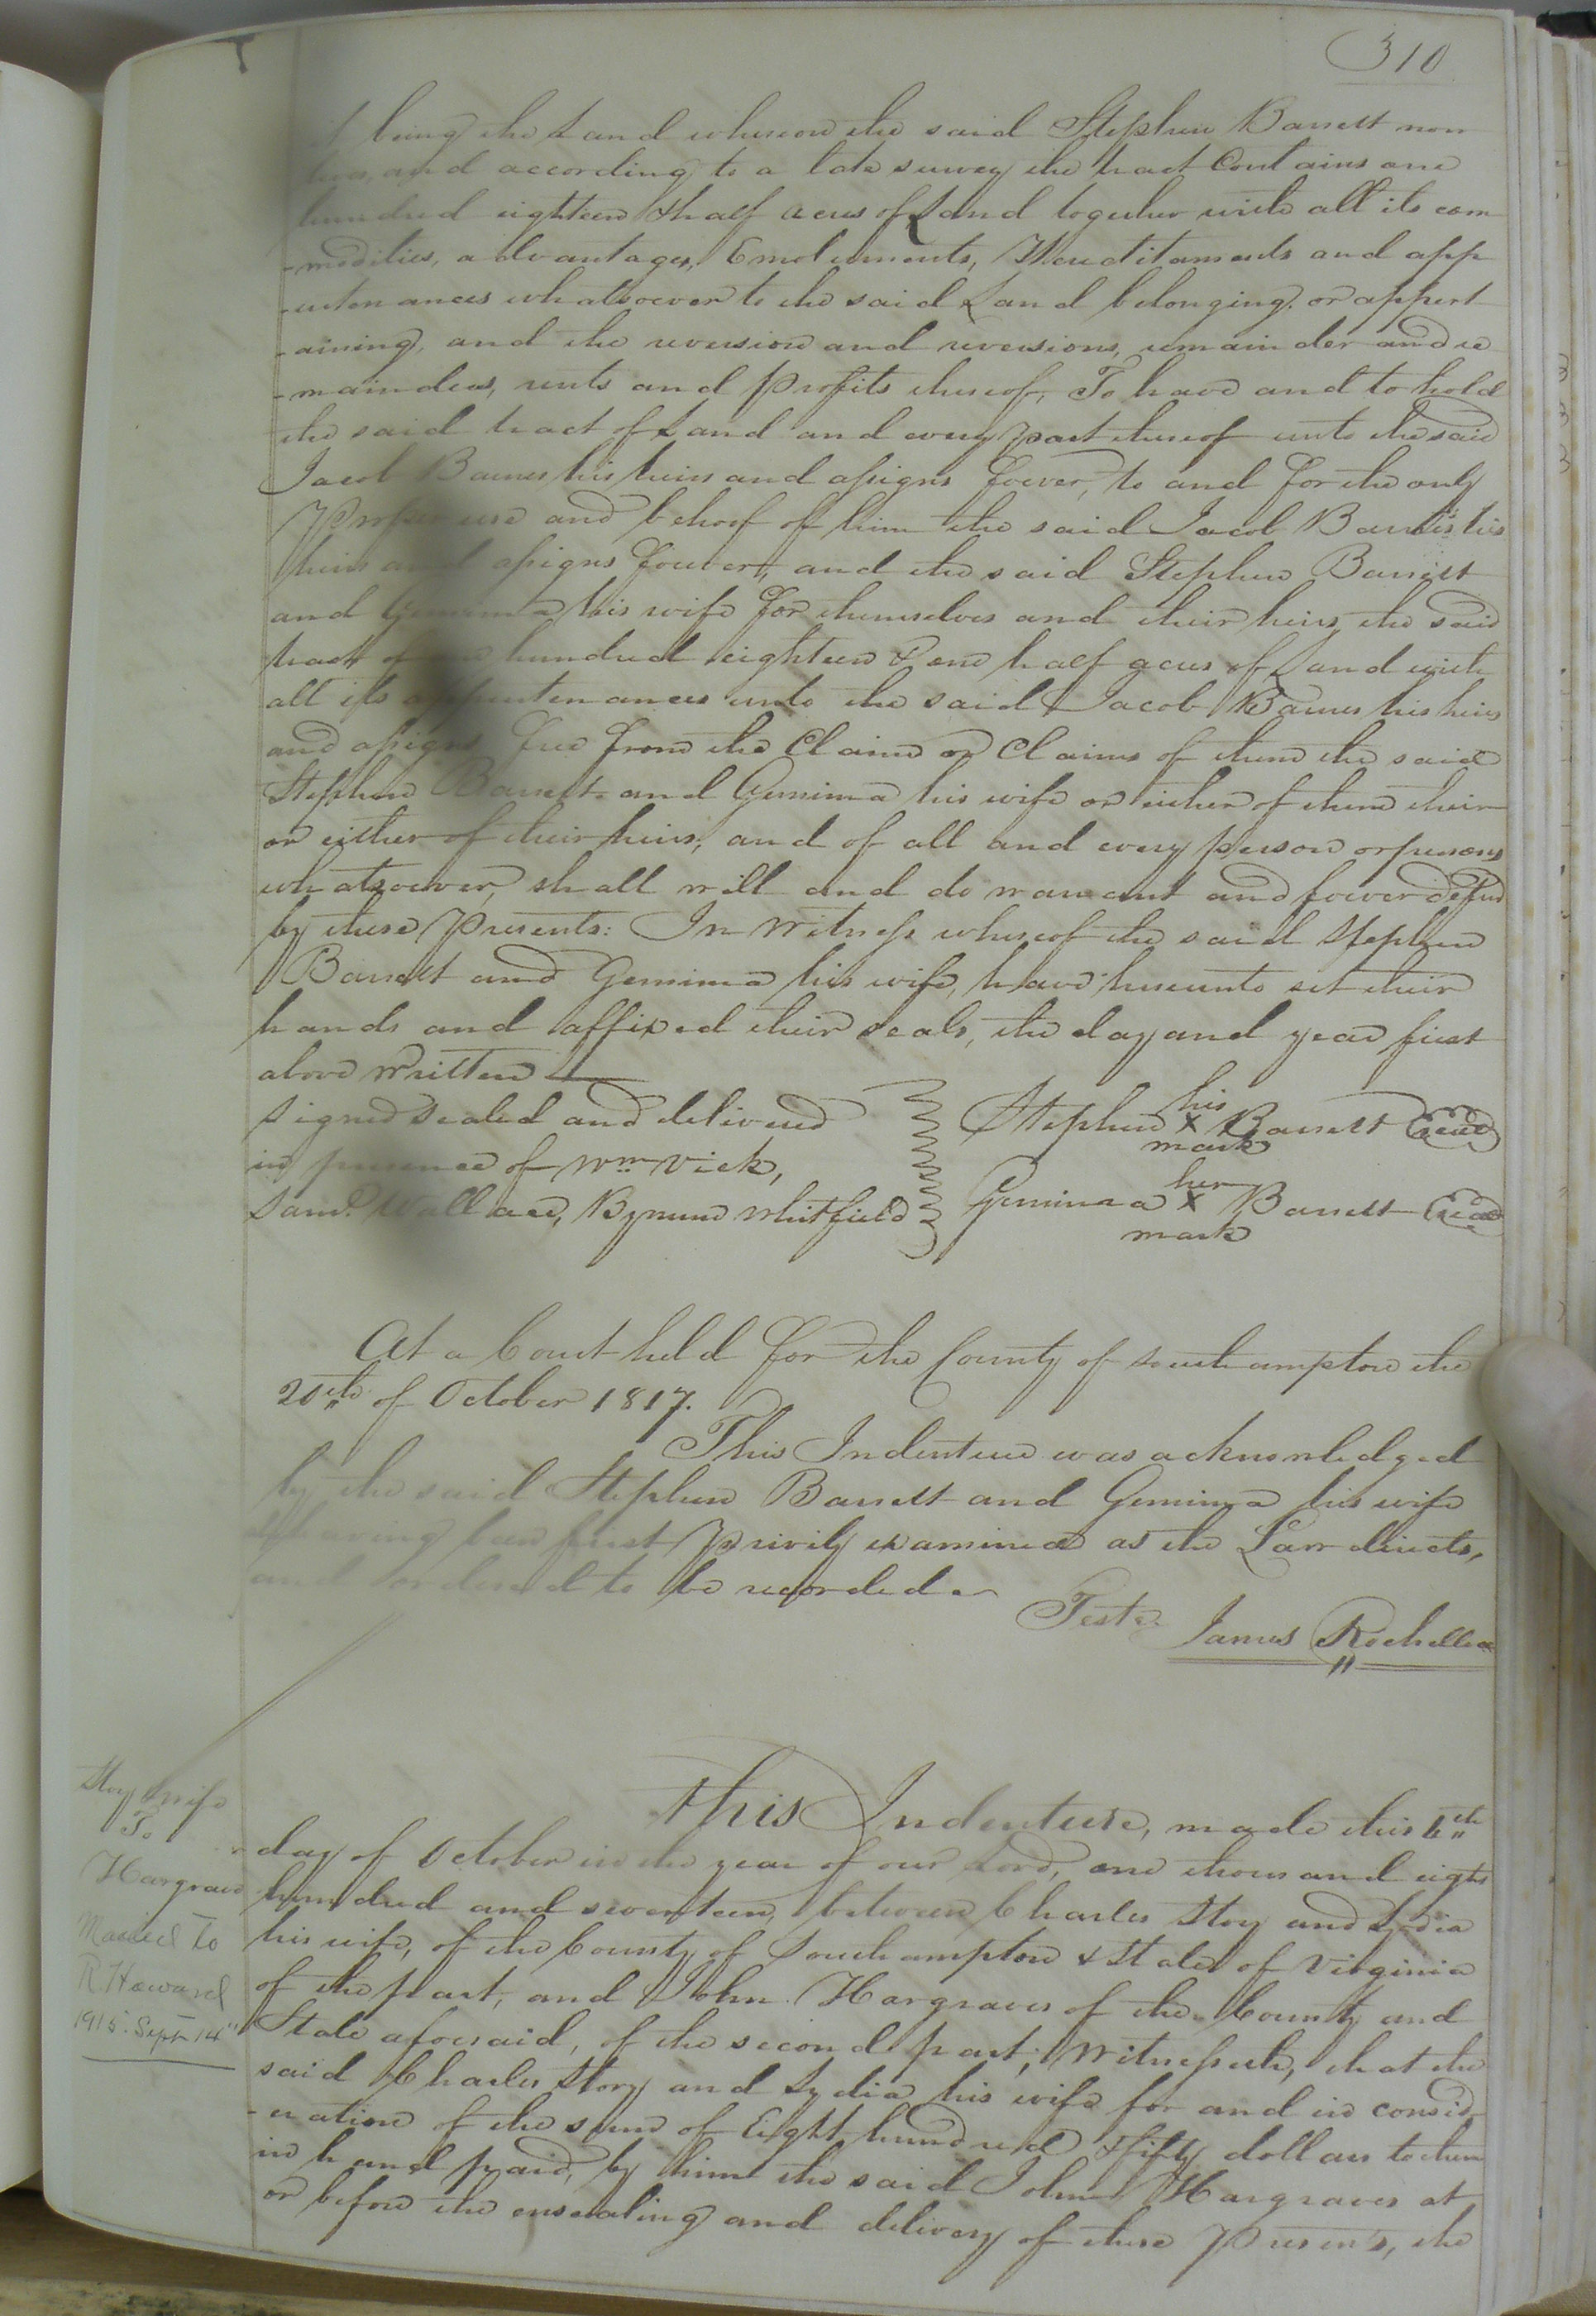 310
being the Land whereon the said Stephen Barrett now
lives, and according to a late survey the tract Contains one
hundred eighteen & half acres of Land together with all its com
-modities, advantages, Emoluments, Hereditaments and app
-urtenances whatsoever to the said Land belonging or appert
-aining, and the reversion and reversions, remainder and re
-mainders, rents and profits thereof, To have and to hold
the said tract of Land and every part thereof unto the said
Jacob Barnes his heirs and assigns forever, to and for the only
Proper use and behoof of him the said Jacob Barnes his
heirs and assigns forever, and the said Stephen Barrett
and Gemima his wife for themselves and their heirs, the said
tract of one hundred eighteen & one half acres of Land with
all its appurtenances unto the said Jacob Barnes his heirs
and assigns free from the Claim or Claims of them the said
Stephen Barrett and Gemima his wife or either of them their
or either of their heirs, and of all and every person or persons
whatsoever, shall will and do warrant and forever defend
by these Presents: In Witness whereof the said Stephen
Barrett and Gemima his wife, have hereunto set their
hands and affixed their seals, the day and year first
above written
Signed Sealed and delivered
in presence of Wm Vick,
Saml Wallace, Bynum Whitfield
his
Stephen X Barrett Seal
mark
her
Gemima X Barrett Seal
mark
At a Court held for the County of Southampton the
20th of October 1817.
This Indenture was acknowledged
by the said Stephen Barrett and Gemima his wife
having been first Privily examined as the Law directs,
and ordered to be recorded
Teste James Rochelle
Story & wife
To
Hargrave
Mailed to
R Howard
1915. Sept 14"
This Indenture, made this
day of October in the year of our Lord, one thousand eight
hundred and seventeen, between Charles Story and Lydia
his wife, of the County of Southampton & State of Virginia
of the part, and John Hargraves of the County and
State aforesaid, of the second part, Witnesseth, that the
said Charles Story and Lydia his wife for and in consid
-eration of the sum of Eight hundred & fifty dollars to them
in hand paid, by him the said John Hargraves at
or before the ensealing and delivery of these Presents, the